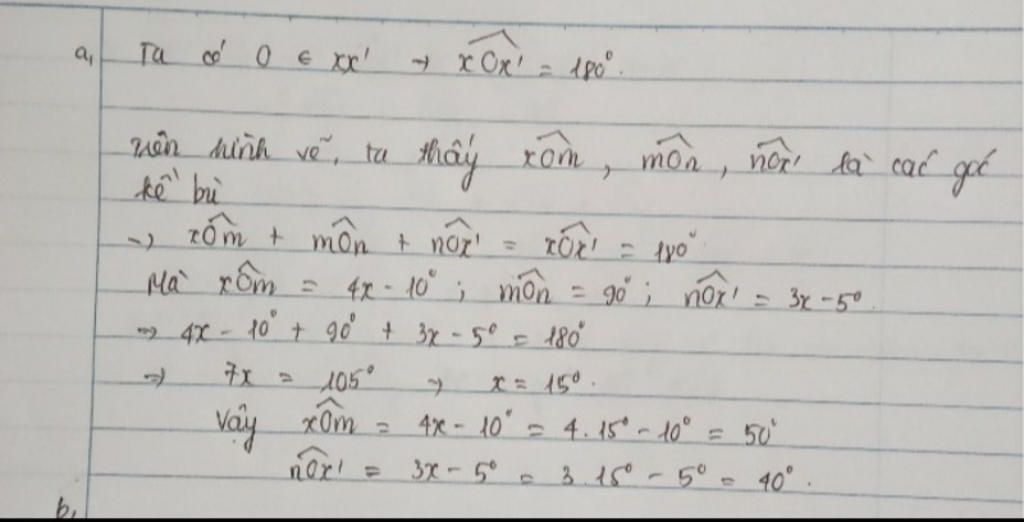 a, Ta có O ∈ xx' → xÔx' = 180°.
Trên hình vẽ, ta thấy xÔm, mÔn, nÔx' là các góc
kề bù
→ xÔm + mÔn + nÔx' = xÔx' = 180°
Mà xÔm = 4x - 10°; mÔn = 90°; nÔx' = 3x - 5°
→ 4x - 10° + 90° + 3x - 5° = 180°
→ 7x = 105° → x = 15°.
Vậy xÔm = 4x - 10° = 4.15° - 10° = 50°
nÔx' = 3x - 5° = 3.15° - 5° = 40°.
b,